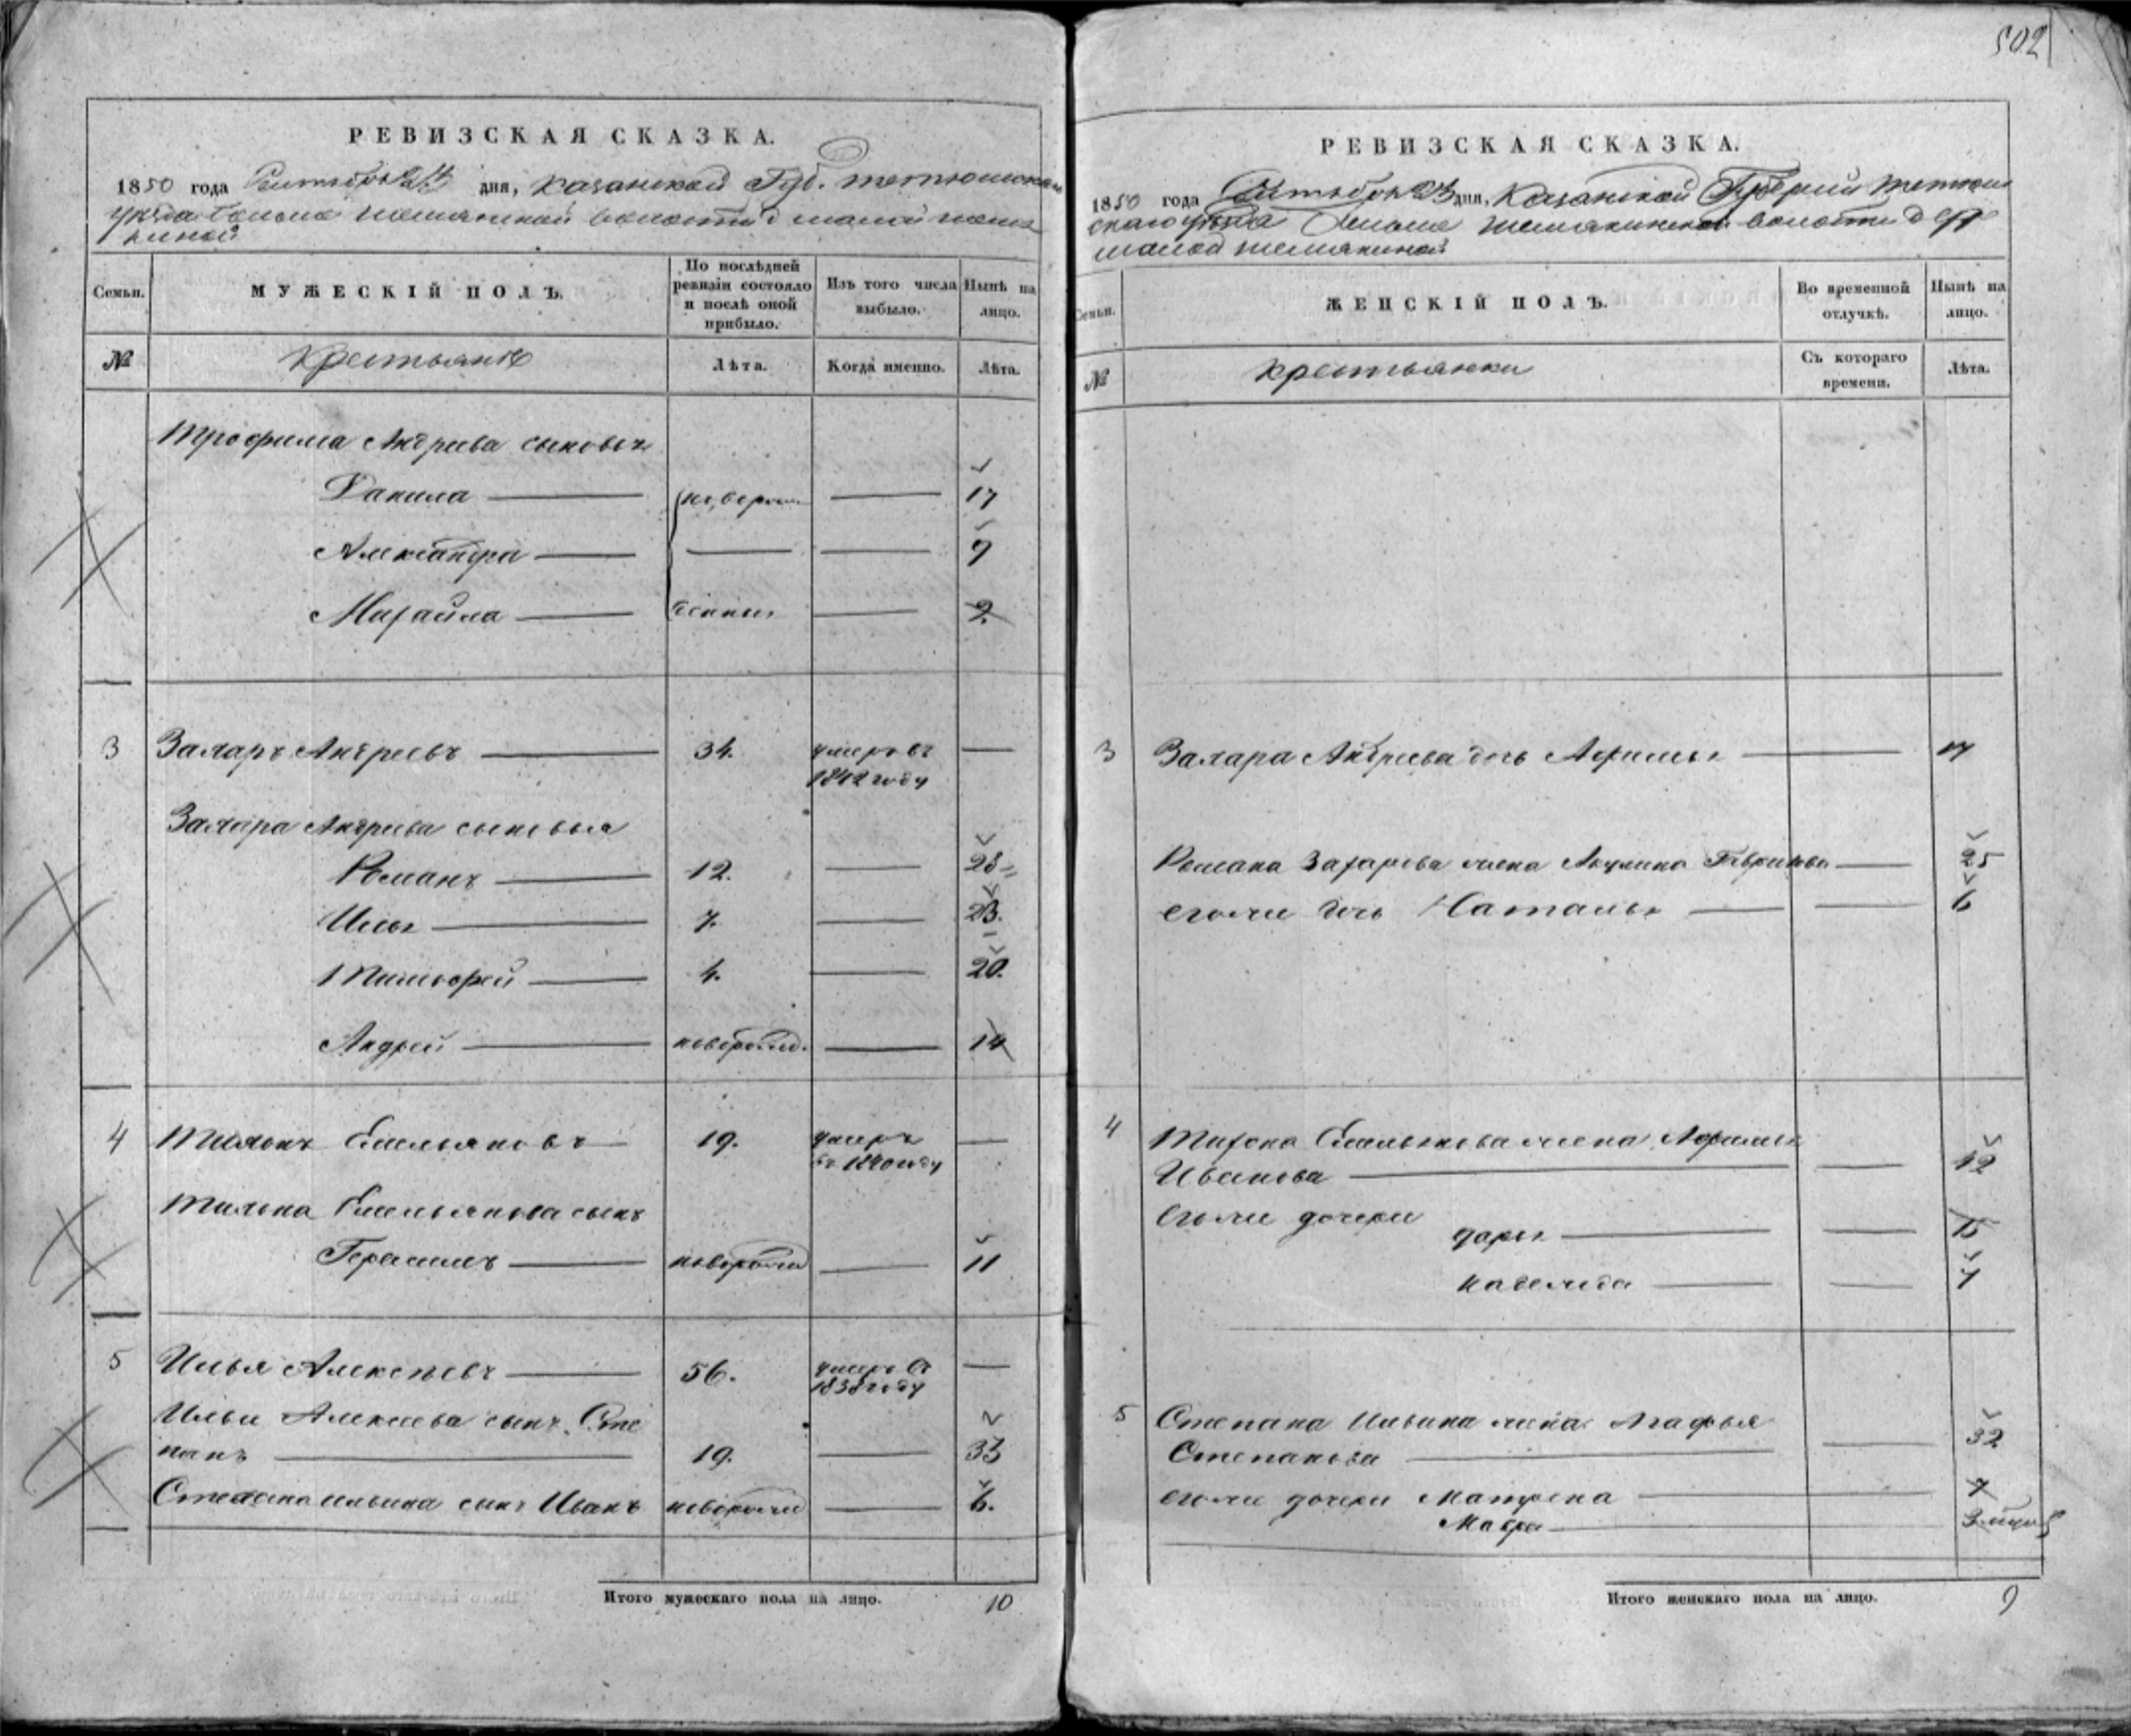 502
РЕВИЗСКАЯ СКАЗКА.
1850 года Октября 24 дня, Казанской Губ. Тетюшскаго
уѣзда Больше Шемякинской волости д малой шемя
киной
Семьи. МУЖЕСКІЙ ПОЛЪ. По послѣдней ревизіи состояло и послѣ оной прибыло. Изъ того числа выбыло. Нынѣ на лицо.
№ Крестьяне Лѣта. Когда именно. Лѣта.
Трофима Андреева сыновья
Данила новорож 17
Александра 7
Михайла денныя 2
3 Захаръ Андреевъ 34. умеръ въ
1842 году
Захара Андреева сыновья
Романъ 12. 28
Илья 7. 23.
Тимофей 4. 20.
Андрей новорожд. 14
4 Тихонъ Емельяновъ 19. умеръ
въ 1840 году
Тихона Емельянова сынъ
Герасимъ новорожд 11
5 Илья Алексѣевъ 56. умеръ въ
1838 году
Ильи Алексеева сынъ Сте
панъ 19. 33
Степана ильина сынъ Иванъ новорожд 6.
Итого мужескаго пола на лицо. 10
РЕВИЗСКАЯ СКАЗКА.
1850 года Октября 24 дня, Казанской Губерніи тетюш
скаго уѣзда Больше шемякинской волости дер
малой шемякиной
Семьи. ЖЕНСКІЙ ПОЛЪ. Во временной отлучкѣ. Нынѣ на лицо.
№ крестьянки Съ котораго времени. Лѣта.
3 Захара Андреева дочь Афимья 17
Романа Захарова жена Акулина Гаврилова 25
Его же дочь Наталья 6
4 Тихона Емельянова жена Афимья
Иванова 42
Его же дочери дарья 15
надежда 7
5 Степана Ильина жена Агафья
Степанова 32
его же дочери Матрена 7
Мавра 3 мѣсяц
Итого женскаго пола на лицо. 9